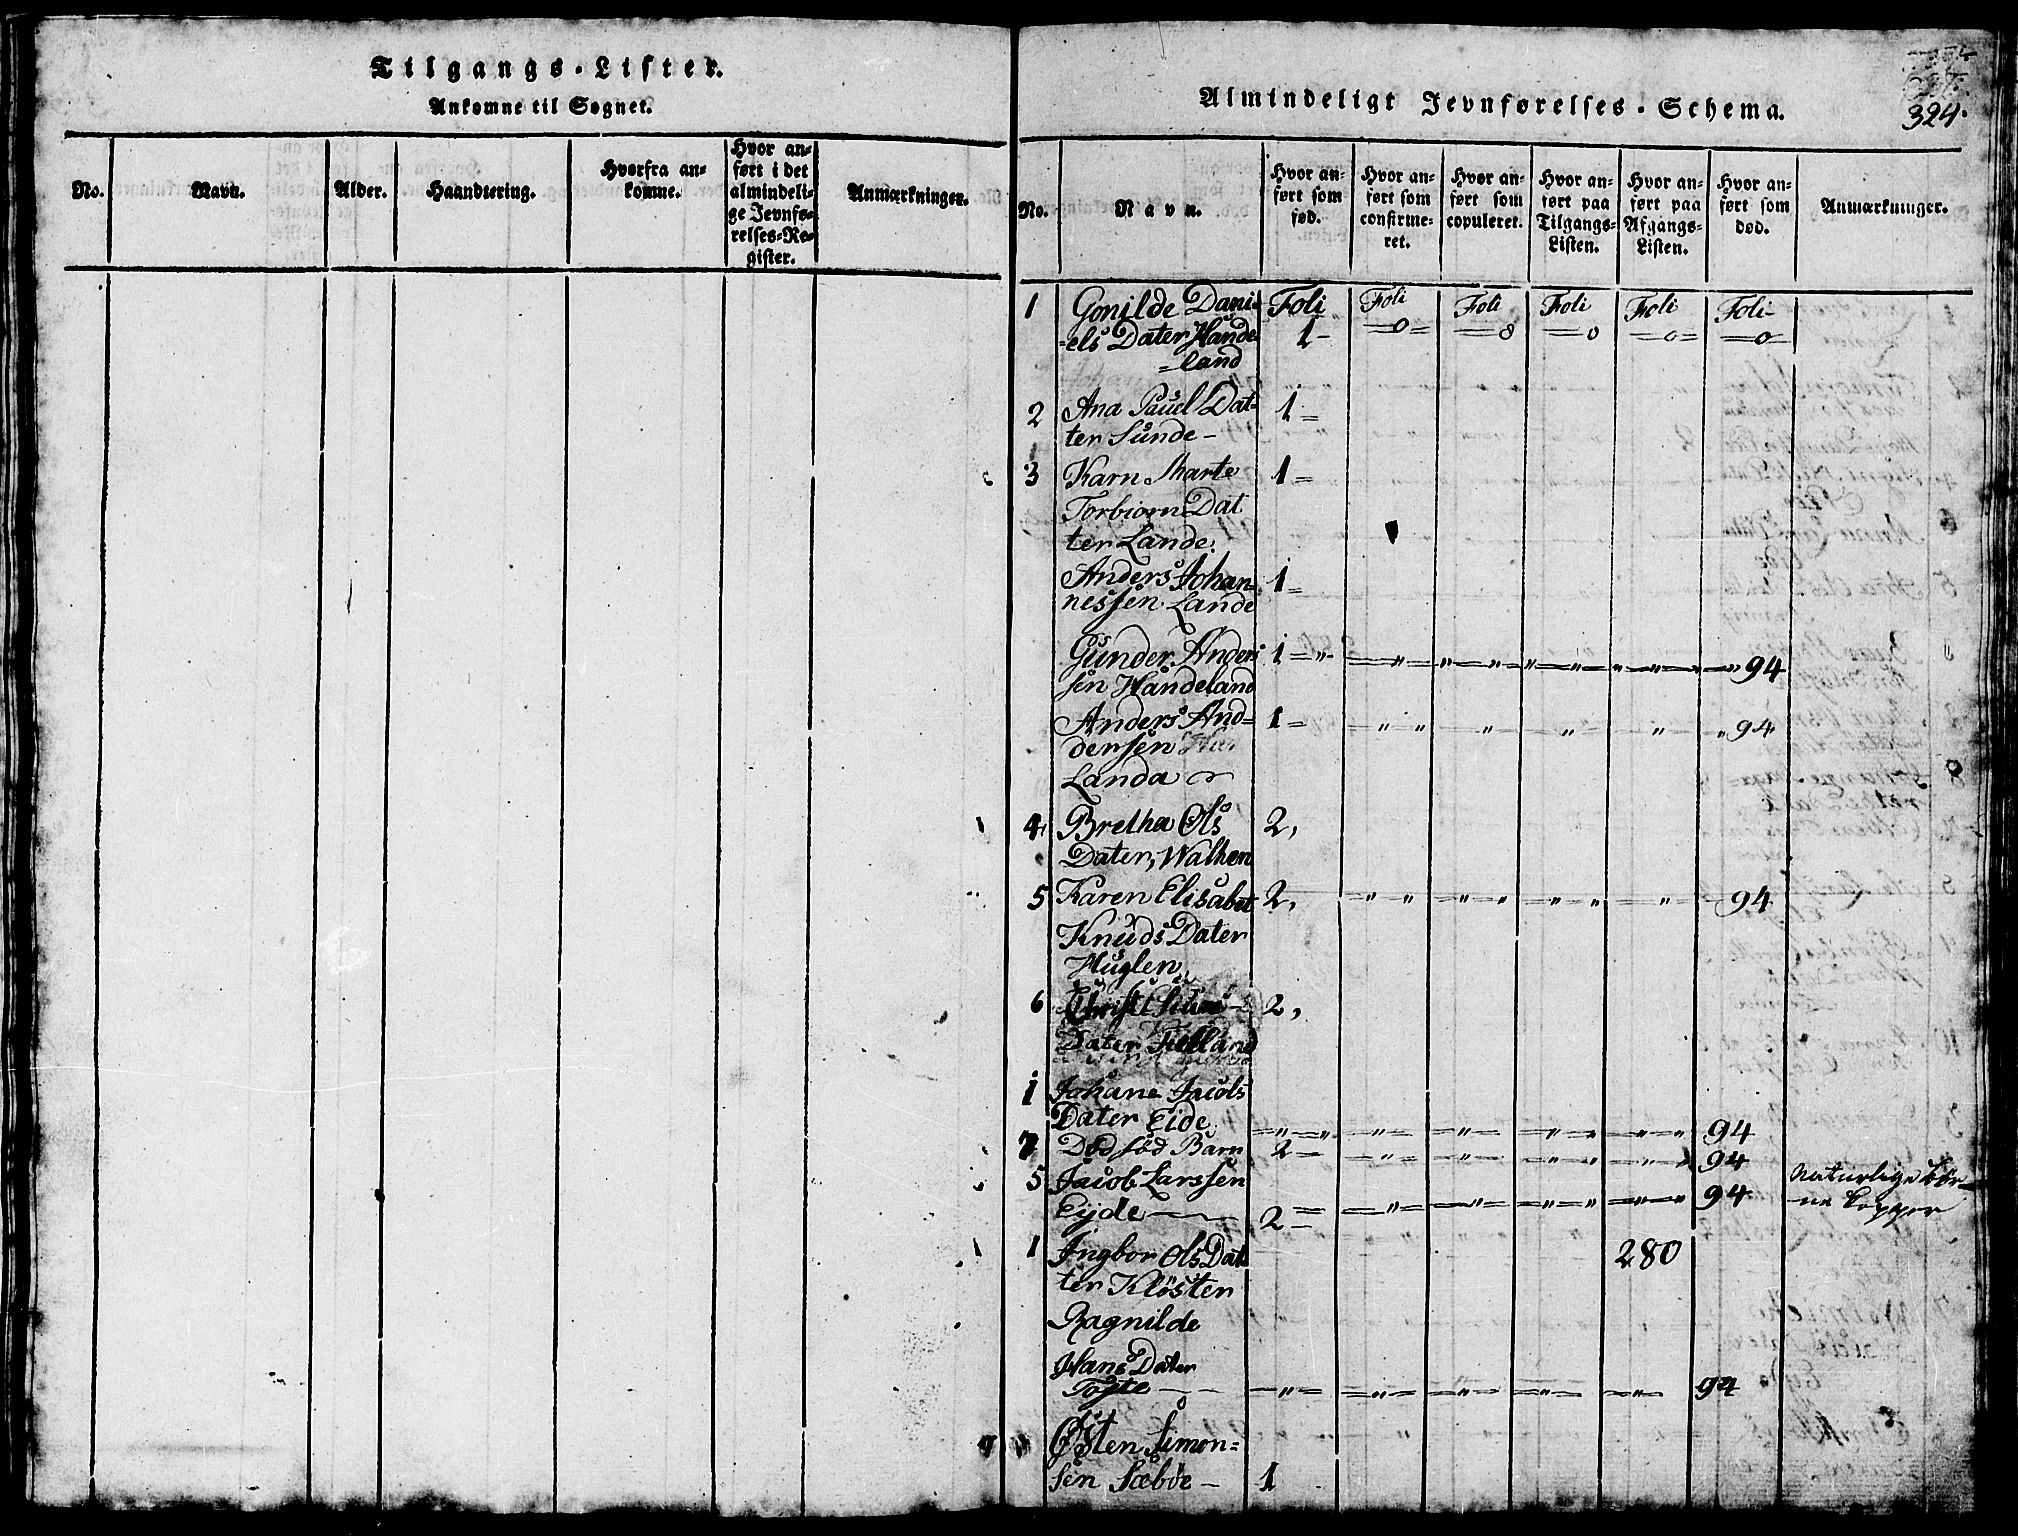 Tilgangs-Lister.
Ankomne til Sognet.
No.
Navn.
Alder.
Haandtering.
Hvorfra an-
komne.
Hvor an-
ført i det
almindeli-
ge Jevnfø-
relses-Re-
gister.
Anmærkninger.
324.
Almindeligt Jevnførelses-Schema.
No.
Navn.
Hvor an-
ført som
fød.
Hvor an-
ført som
confirme-
ret.
Hvor an-
ført som
copuleret.
Hvor an-
ført paa
Tilgangs-
Listen.
Hvor an-
ført paa
Afgangs-
Listen.
Hvor an-
ført som
død.
Anmærkninger.
1 Gonilde Dani- Foli Foli Foli Foli Foli Foli
=els Dater Hande 1- =0= =0 =0 =0= =0=
=land
2 Ana Pauel Dat- 1=
ter Sunde-
3 Karn Marte 1=
Torbiorn Dat
ter Lande.
Anders Johan- 1=
nessen Lande
Gunder Anders 1=〃- 〃 〃 〃 〃 〃 〃 〃 94
sen Handeland
Anders And= 1= 〃 〃 〃 〃 〃 〃 94
dersen
Landa
4 Bretha Ols 2,
Dater, Walhen
5 Karen Elisabet 2, 〃 〃 〃 〃 〃 〃 〃 94
Knuds Dater
Huglen
6 2,
Dater Fielland
1 Johane Jacobs
Dater Eide =〃=〃= 〃 〃 〃 〃 〃 〃 94
7 Død fød Barn 2= 〃 〃 〃 〃 〃 94
5 Jacob Larssen
Eyde 2= 〃 〃 〃 〃 〃 〃 94 Naturlige Bør-
ne Kopper
1 Jngbor Ols Dat 280
ter Kløsten
Ragnilde
Hans Dater
Tofte =〃= 〃 〃 〃 〃 94
Østen Simon=
sen Sæbøe - 1